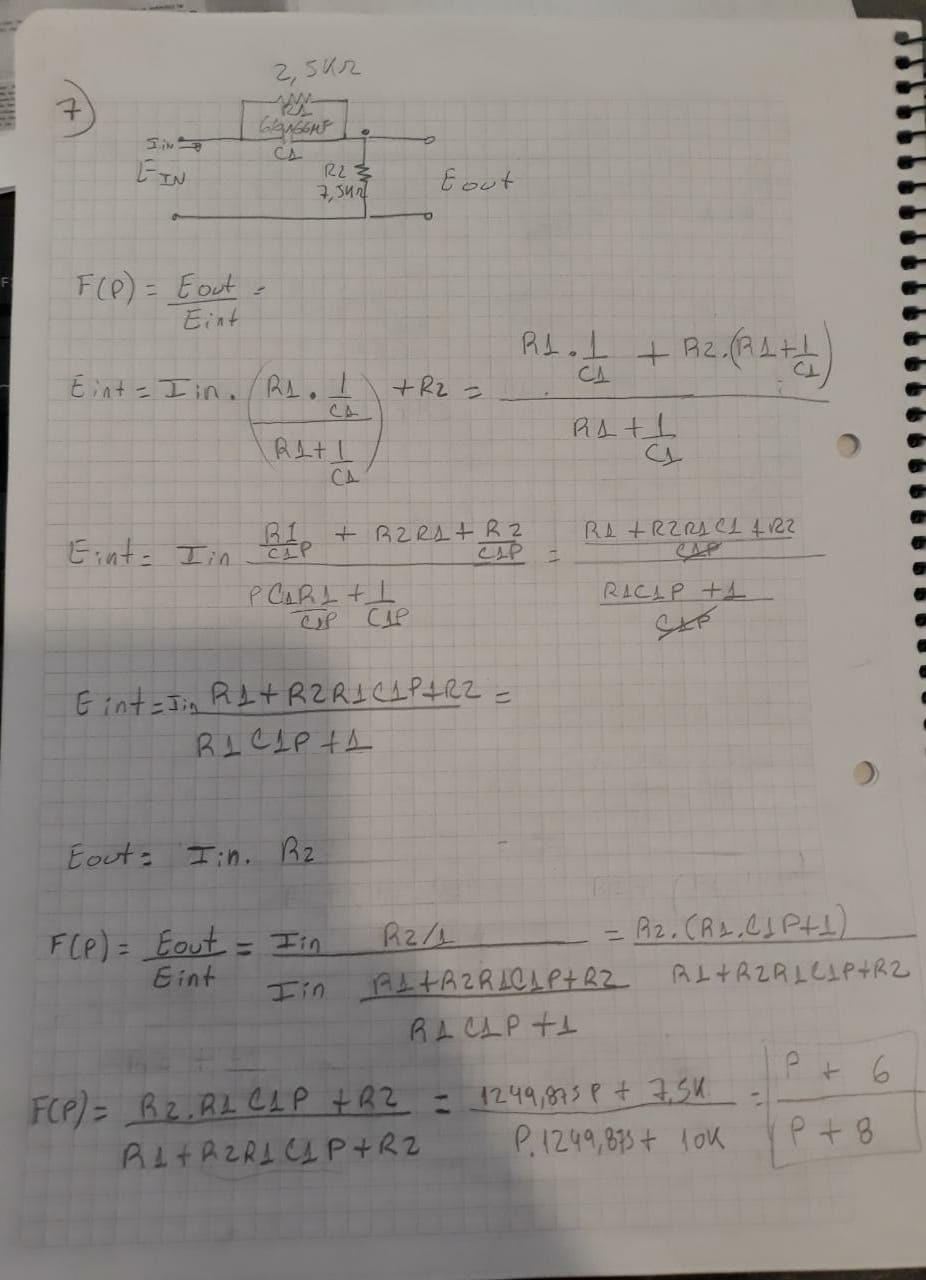 7)
2,5KΩ
R1
C1
I.in
E IN
R2
7,5KΩ
Eout
F(P) = Eout / Eint =
Eint = I in . (R1 . 1/C1 / R1 + 1/C1) + R2 = R1 . 1/C1 + R2.(R1 + 1/C1) / R1 + 1/C1
Eint = I in R1/C1P + R2R1 + R2/C1P / PC1R1/C1P + 1/C1P = R1 + R2R1C1 + R2 / C1P / R1C1P + 1 / C1P
Eint = Iin R1 + R2R1C1P + R2 / R1C1P + 1 =
Eout = Iin. R2
F(P) = Eout / Eint = Iin R2/1 / Iin R1+R2R1C1P+R2 / R1C1P + 1 = R2.(R1.C1P+1) / R1+R2R1C1P+R2
F(P) = R2.R1C1P + R2 / R1+R2R1C1P+R2 = 1249,875P + 7,5K / P.1249,875 + 10K = P + 6 / P + 8